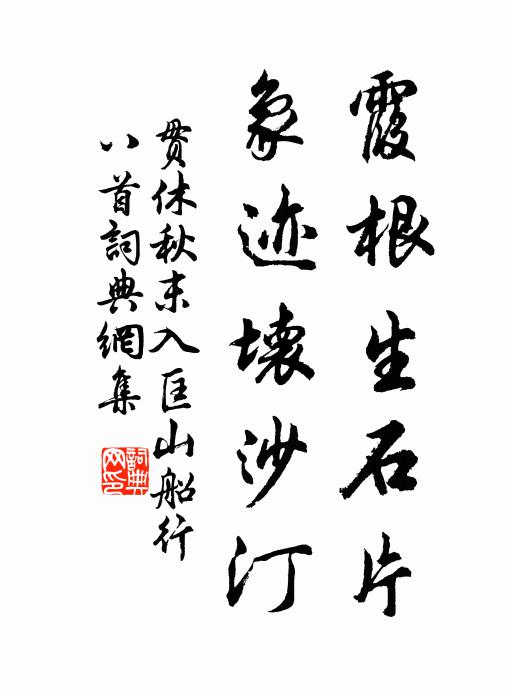 霞根生石片
象迹壞沙汀
貫休秋末入匡山船行
八首詞典網集
詞典網印